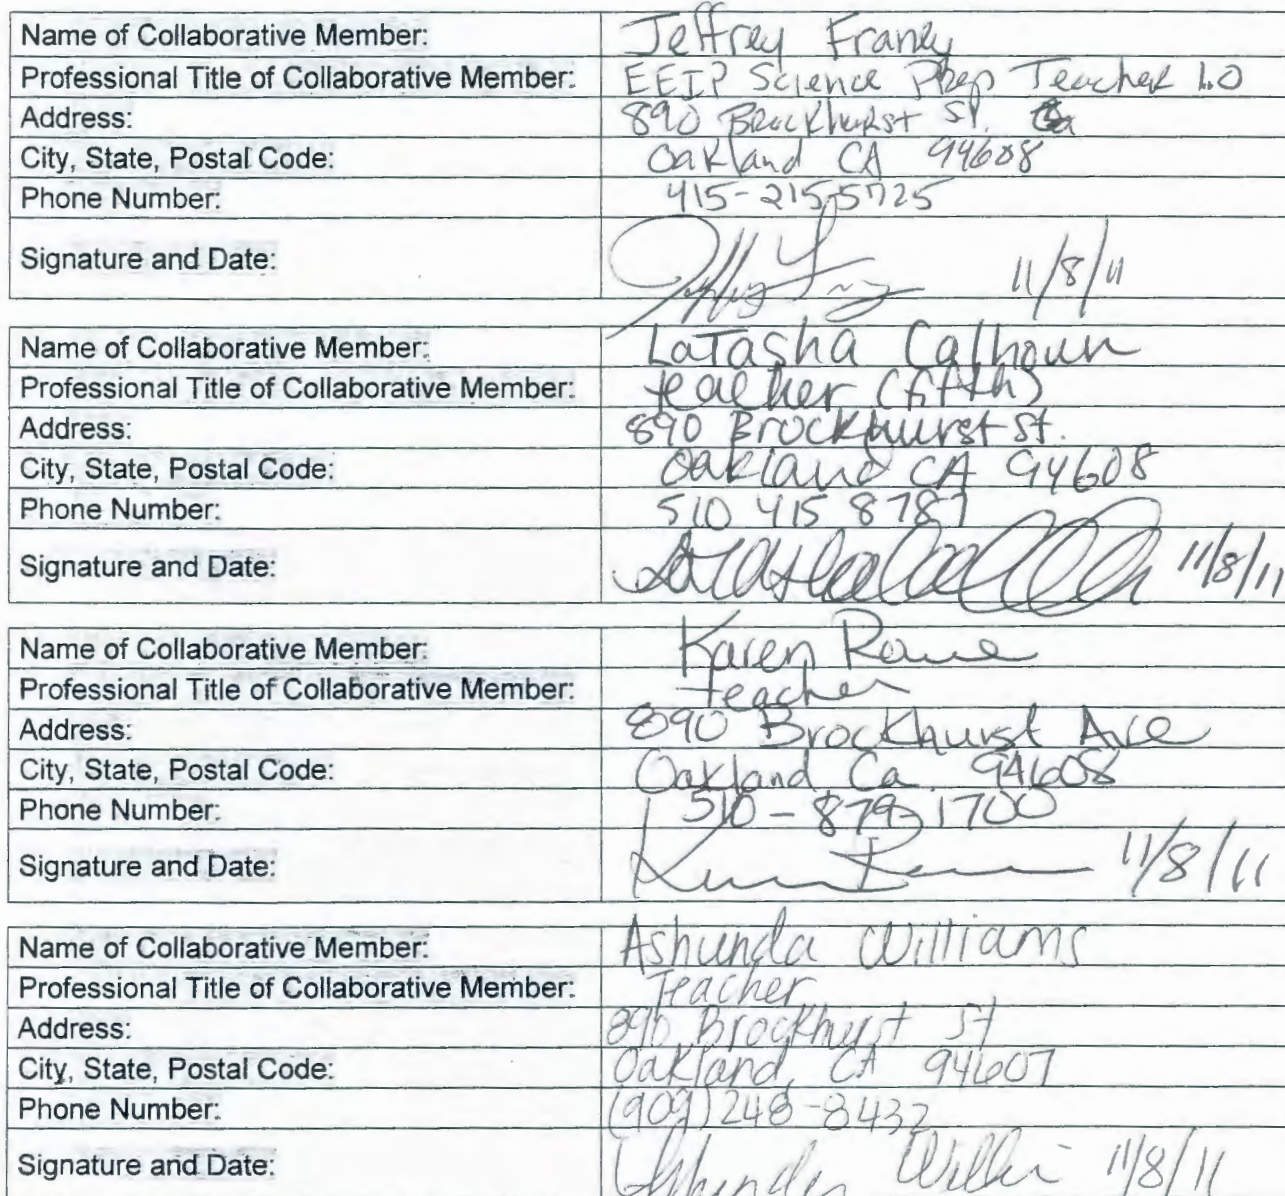 Name of Collaborative Member: Jeffrey Franey
Professional Title of Collaborative Member: EEIP Science Prep Teacher 1.0
Address: 890 Brockhurst St.
City, State, Postal Code: Oakland CA 94608
Phone Number: 415-215-5725
Signature and Date: 11/8/11
Name of Collaborative Member: LaTasha Calhoun
Professional Title of Collaborative Member: teacher (fifth)
Address: 890 Brockhurst St.
City, State, Postal Code: Oakland CA 94608
Phone Number: 510 415 8787
Signature and Date: 11/8/11
Name of Collaborative Member: Karen Rowe
Professional Title of Collaborative Member: teacher
Address: 890 Brockhurst Ave
City, State, Postal Code: Oakland Ca. 94608
Phone Number: 510-879-1700
Signature and Date: 11/8/11
Name of Collaborative Member: Ashunda Williams
Professional Title of Collaborative Member: Teacher
Address: 890 Brockhurst St
City, State, Postal Code: Oakland, CA 94607
Phone Number: (909) 248-8432
Signature and Date: 11/8/11